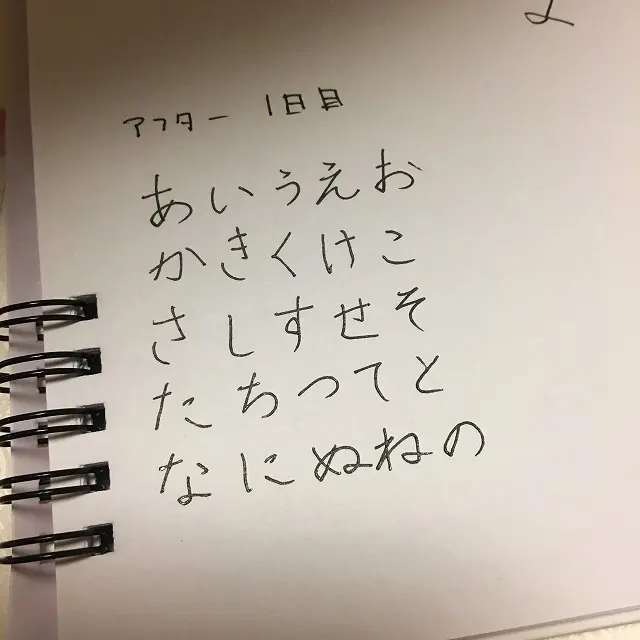 アフター 1日目
あいうえお
かきくけこ
さしすせそ
たちつてと
なにぬねの